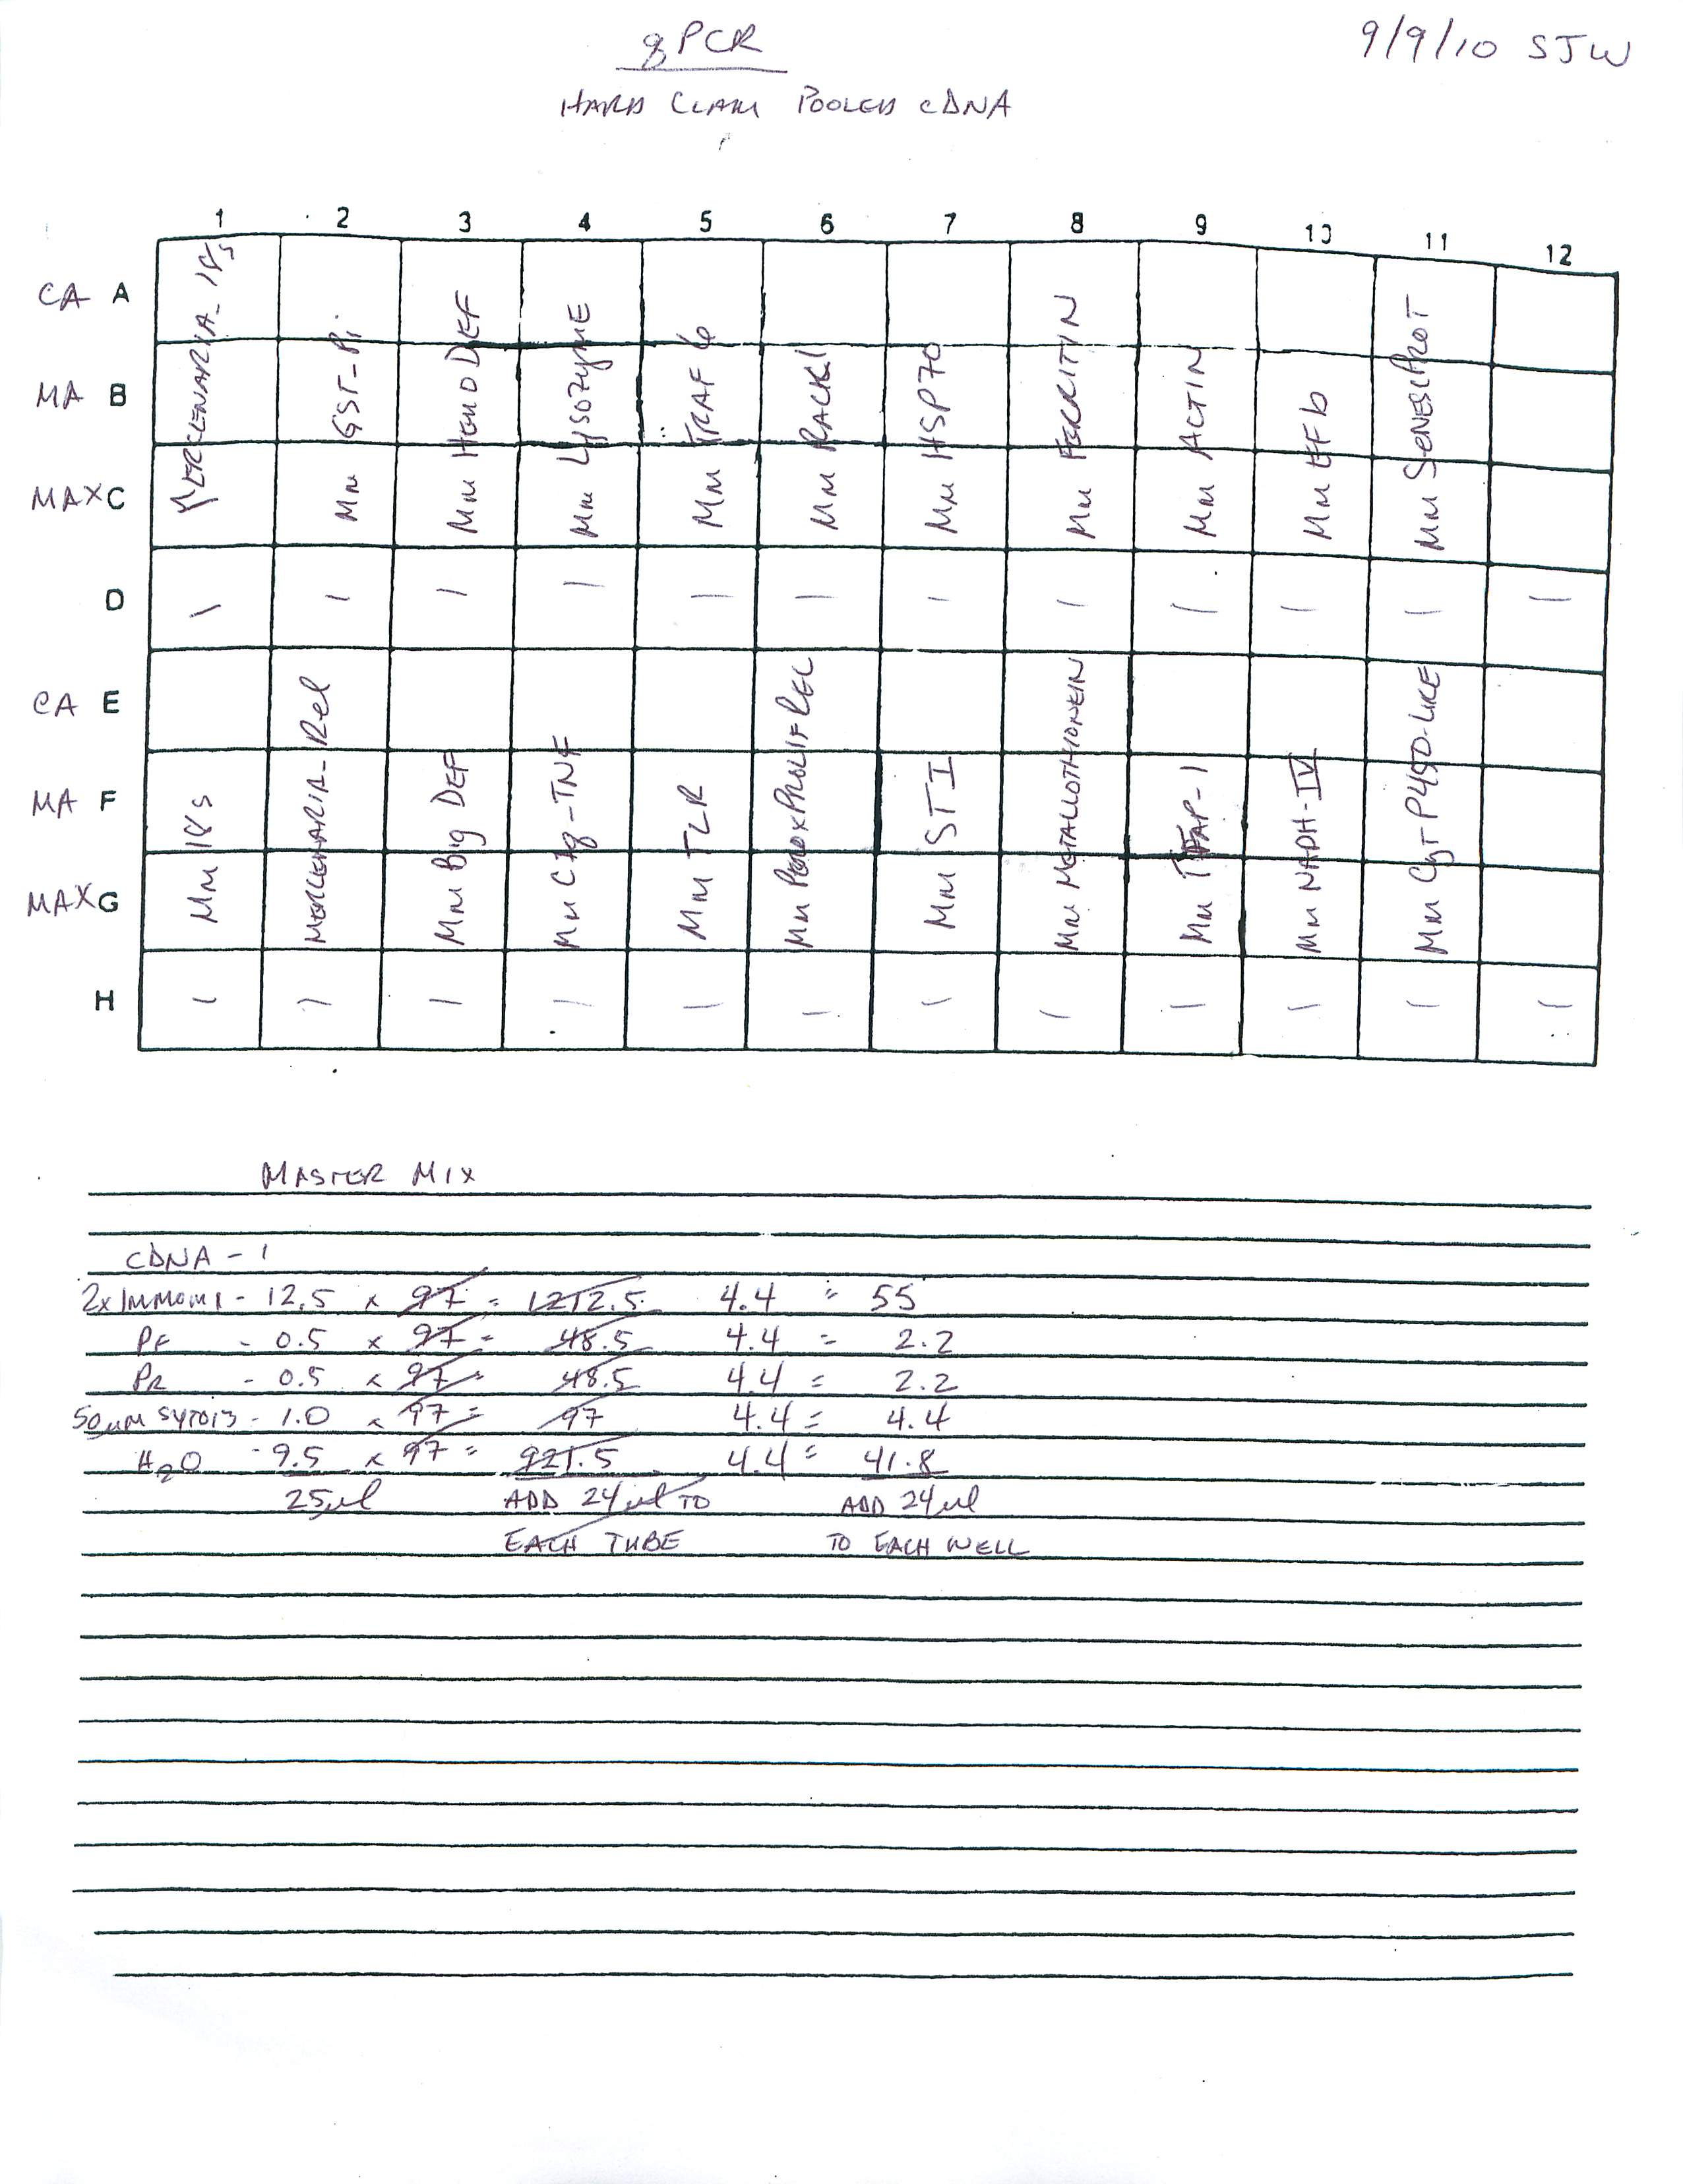 qPCR
9/9/10 SJW
HARD CLAM POOLED cDNA
1 2 3 4 5 6 7 8 9 10 11 12
CA A
MA B
MAX C
D
CA E
MA F
MAX G
H
MERCENARIA_18s
Mm GST-Pi
Mm HEMO DEF
Mm LYSOZYME
Mm TRAF 6
Mm RACK1
Mm HSP70
Mm FERRITIN
Mm ACTIN
Mm EFb
Mm SENESCPROT
– – – – – – – – – – – –
Mm 18s
MERCENARIA_Rel
Mm Big DEF
Mm C1q-TNF
Mm TLR
Mm PEROXPROLIFREC
Mm STI
Mm METALLOTHIONEIN
Mm AP-1
Mm NADH-IV
Mm CytP450-LIKE
– – – – – – – – – – – –
MASTER MIX
cDNA - 1
2x Immomix - 12.5 x 97 = 1212.5 4.4 = 55
PF - 0.5 x 97 = 48.5 4.4 = 2.2
PR - 0.5 x 97 = 48.5 4.4 = 2.2
50µM SYTO13 - 1.0 x 97 = 97 4.4 = 4.4
H2O - 9.5 x 97 = 921.5 4.4 = 41.8
25µl ADD 24µl TO ADD 24µl
EACH TUBE TO EACH WELL